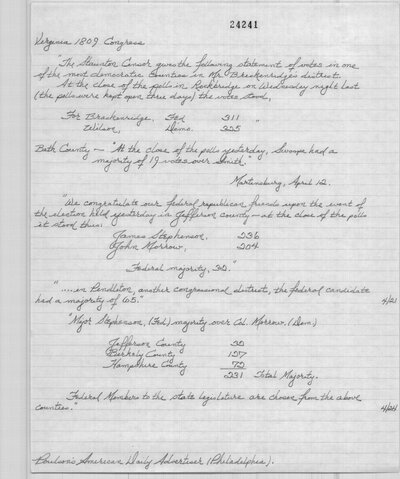 24241
Virginia 1809 Congress
The Staunton Censor gives the following statement of votes in one
of the most democratic Counties in Mr. Breckenridge's district.
At the close of the polls in Rockbridge on Wednesday night last
(the polls were kept open three days) the votes stood,
For Breckenridge, Fed 311
Wilson, Demo. 325 "
Bath County — "At the close of the polls yesterday, Swoope had a
majority of 19 votes over Smith."
Martinsburg, April 12.
"We congratulate our federal republican friends upon the event of
the election held yesterday in Jefferson county — at the close of the polls
it stood thus:
James Stephenson, 236
John Morrow, 204
Federal majority, 32."
".... in Pendleton, another congressional district, the federal candidate
had a majority of 65." 4/21
"Major Stephenson, (Fed) majority over Col. Morrow, (Dem.)
Jefferson County 32
Berkely County 127
Hampshire County 72
231 Total Majority.
Federal Members to the state legislature are chosen from the above
counties." 4/24
Poulson's American Daily Advertiser (Philadelphia).